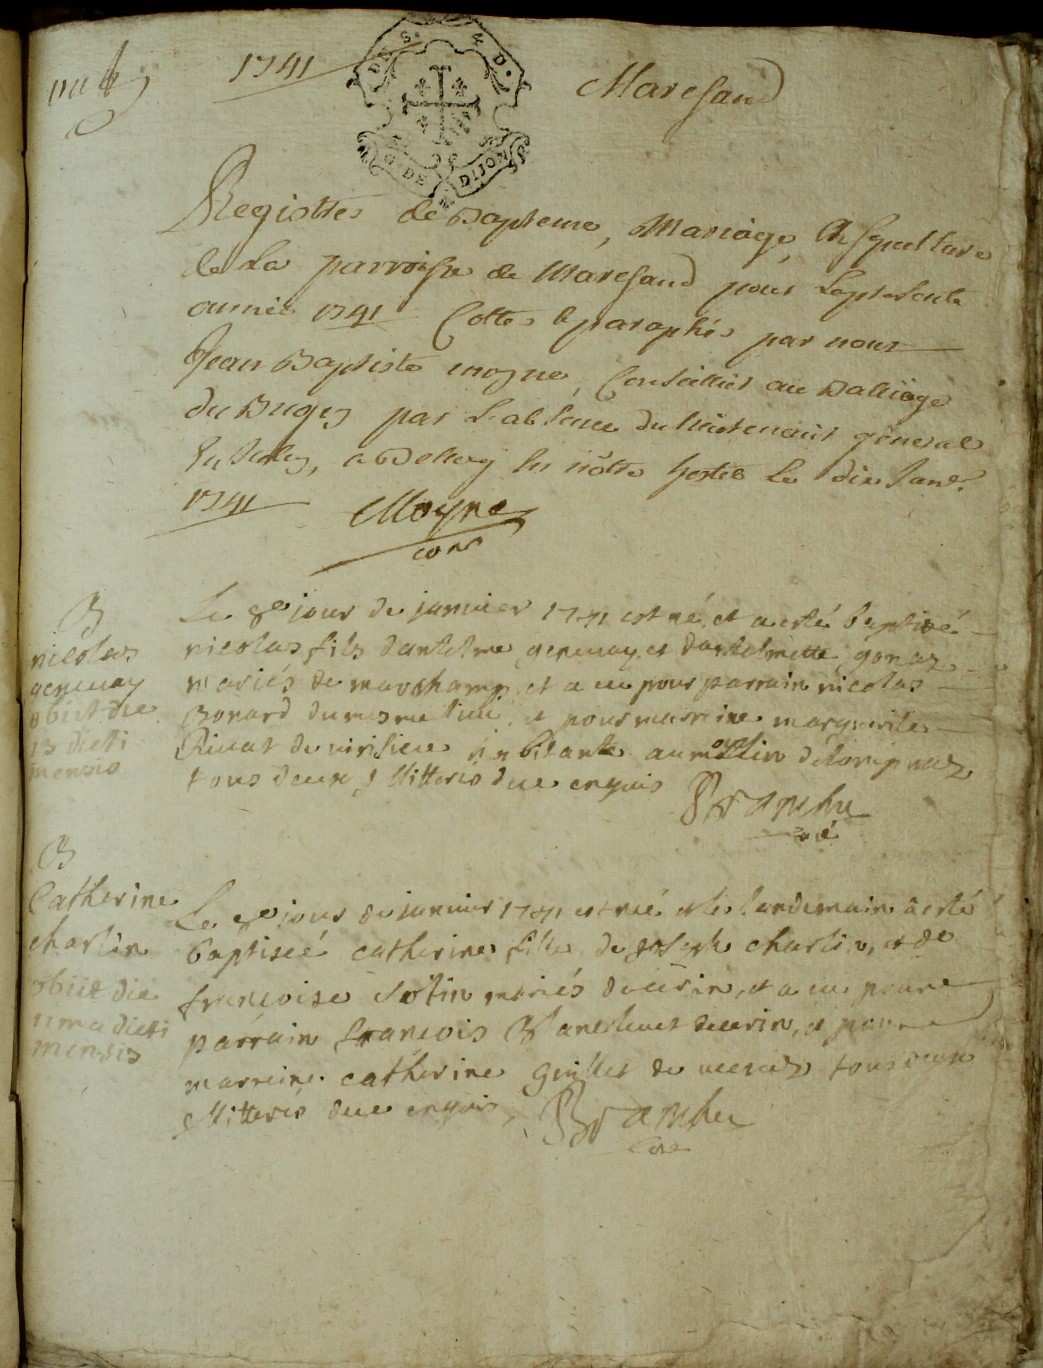 1741
Marefand
DES. 4 D.
G. DE DIJON
Registres de Bapteme, Mariage, & sepulture
de La parroisse de Marefand pour Lapresente
année 1741 Cottes & paraphés par nous
Jean Baptiste moyne, Conseillier au Balliage
du Bugey par L'absence du Lieutenant general
a Belley en nôtre hostel Le dix Janv.
1741 Moyne
cons
B
nicolas
gennay
obiit die
13 dicti
mensis
Le 8e jour de janvier 1741 est né, et a esté baptisé
nicolas fils d'antelme gennay et d'antelmette gonaz
mariés de marchamp, et a eu pour parrain nicolas
Bonard du mesme lieu, et pour marreine marguerite
Rivat de virisieu habitante au molin
tous deux illitterés de ce enquis Branche
curé
B
Catherine
charlin
obiit die
dicti
mensis
Le 9e jour de janvier 1741 est née et le landemain a esté
baptiseé catherine fille de joseph charlin, et de
françoise mariés de cerin, et a eu pour
parrain francois Blanchet de cerin, et pour
marreine catherine Guillet de tous deux
illitterés de ce enquis, Branche
Curé